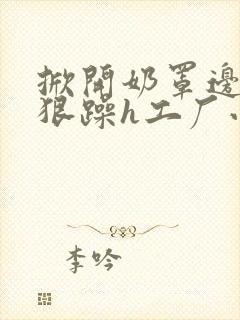 掀開奶罩邊
狠躁h工厂
李吟